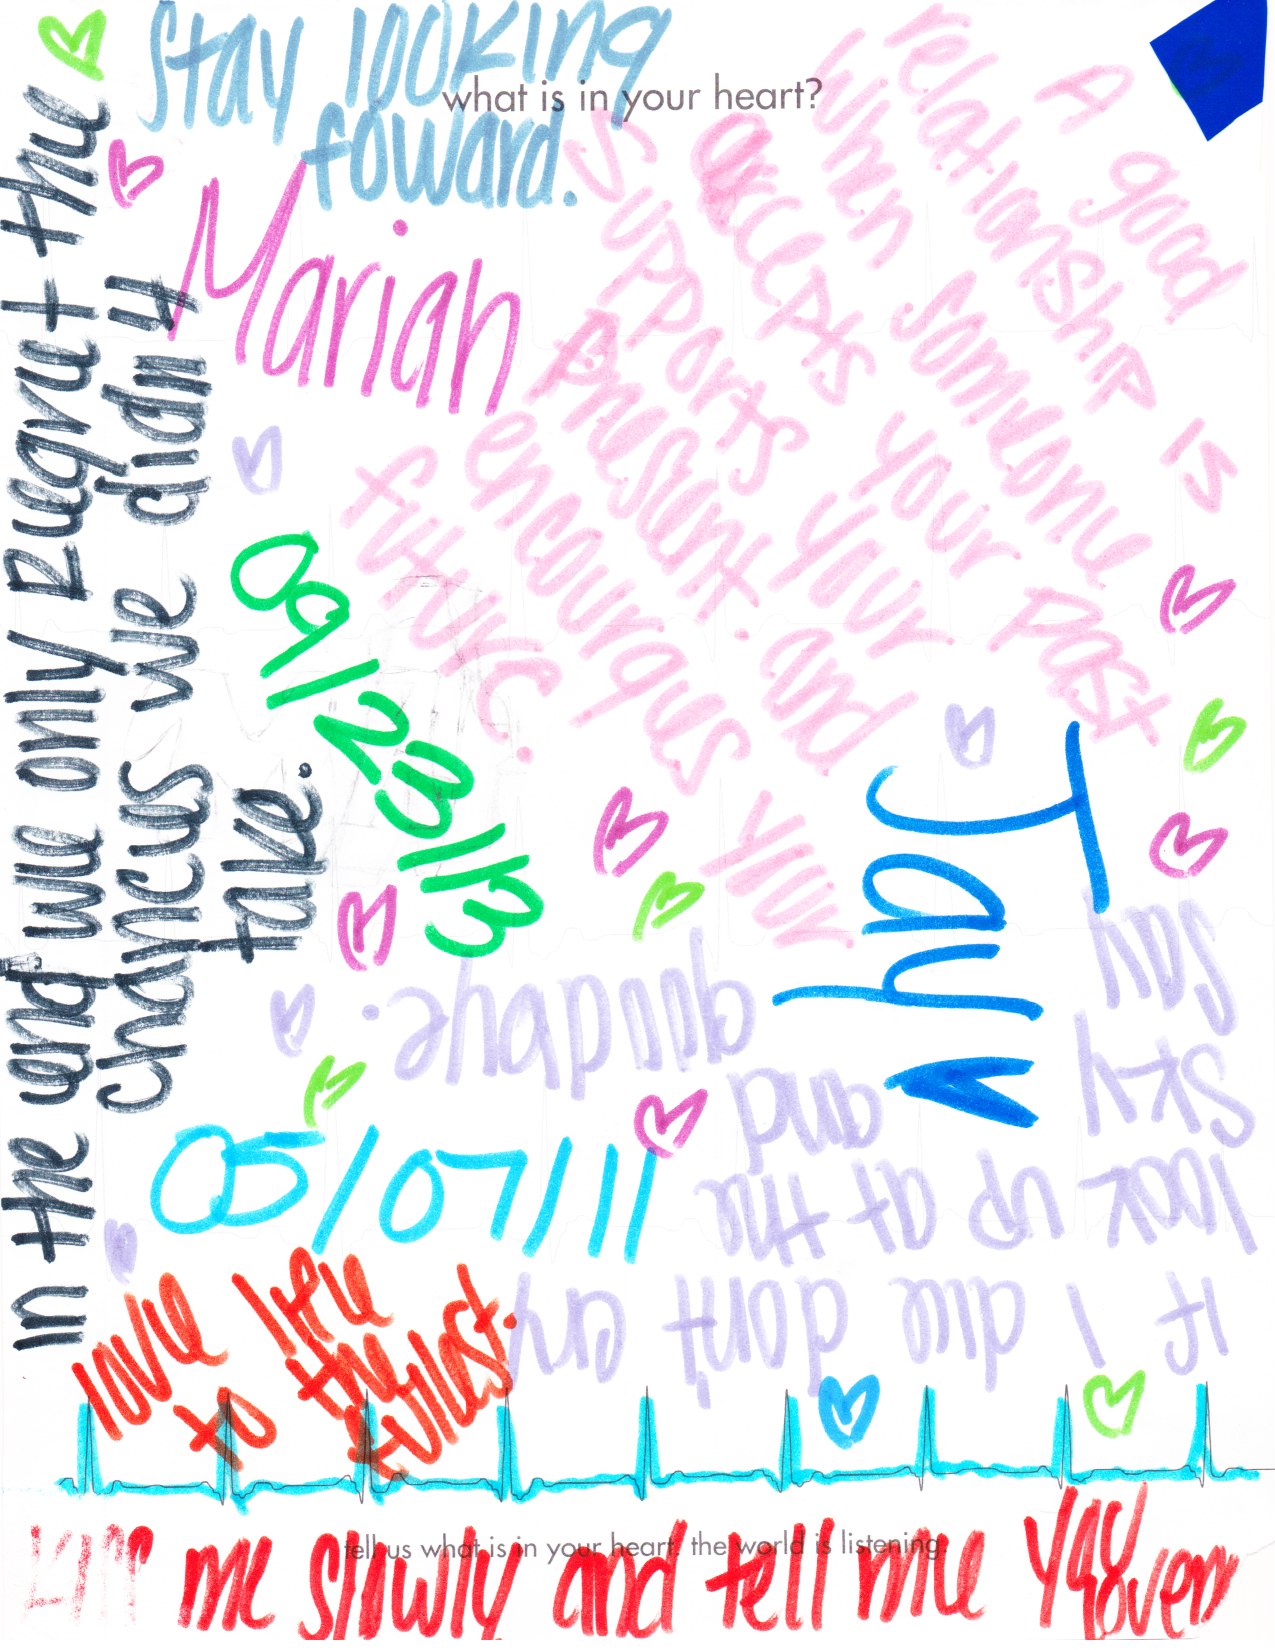 Stay looking
foward.
what is in your heart?
Mariah
A good
relationship is
when someone
accepts your past
supports your
present and
encourages your
future.
In the end we only Regret the
chances we didn't
take.
09/23/13
Jay
If I die don't cry
look up at the
sky and
say goodbye.
05/07/11
love life
to the
fullest.
me slowly and tell me
tell us what is in your heart. the world is listening.